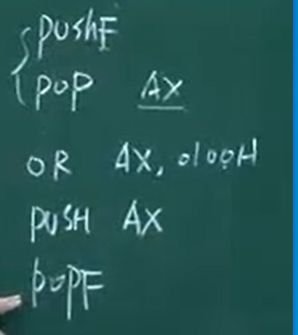 PUSHF
POP AX
OR AX, 0100H
PUSH AX
POPF